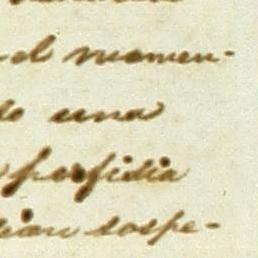 el momen-
do una
perfidia
dian sospe-